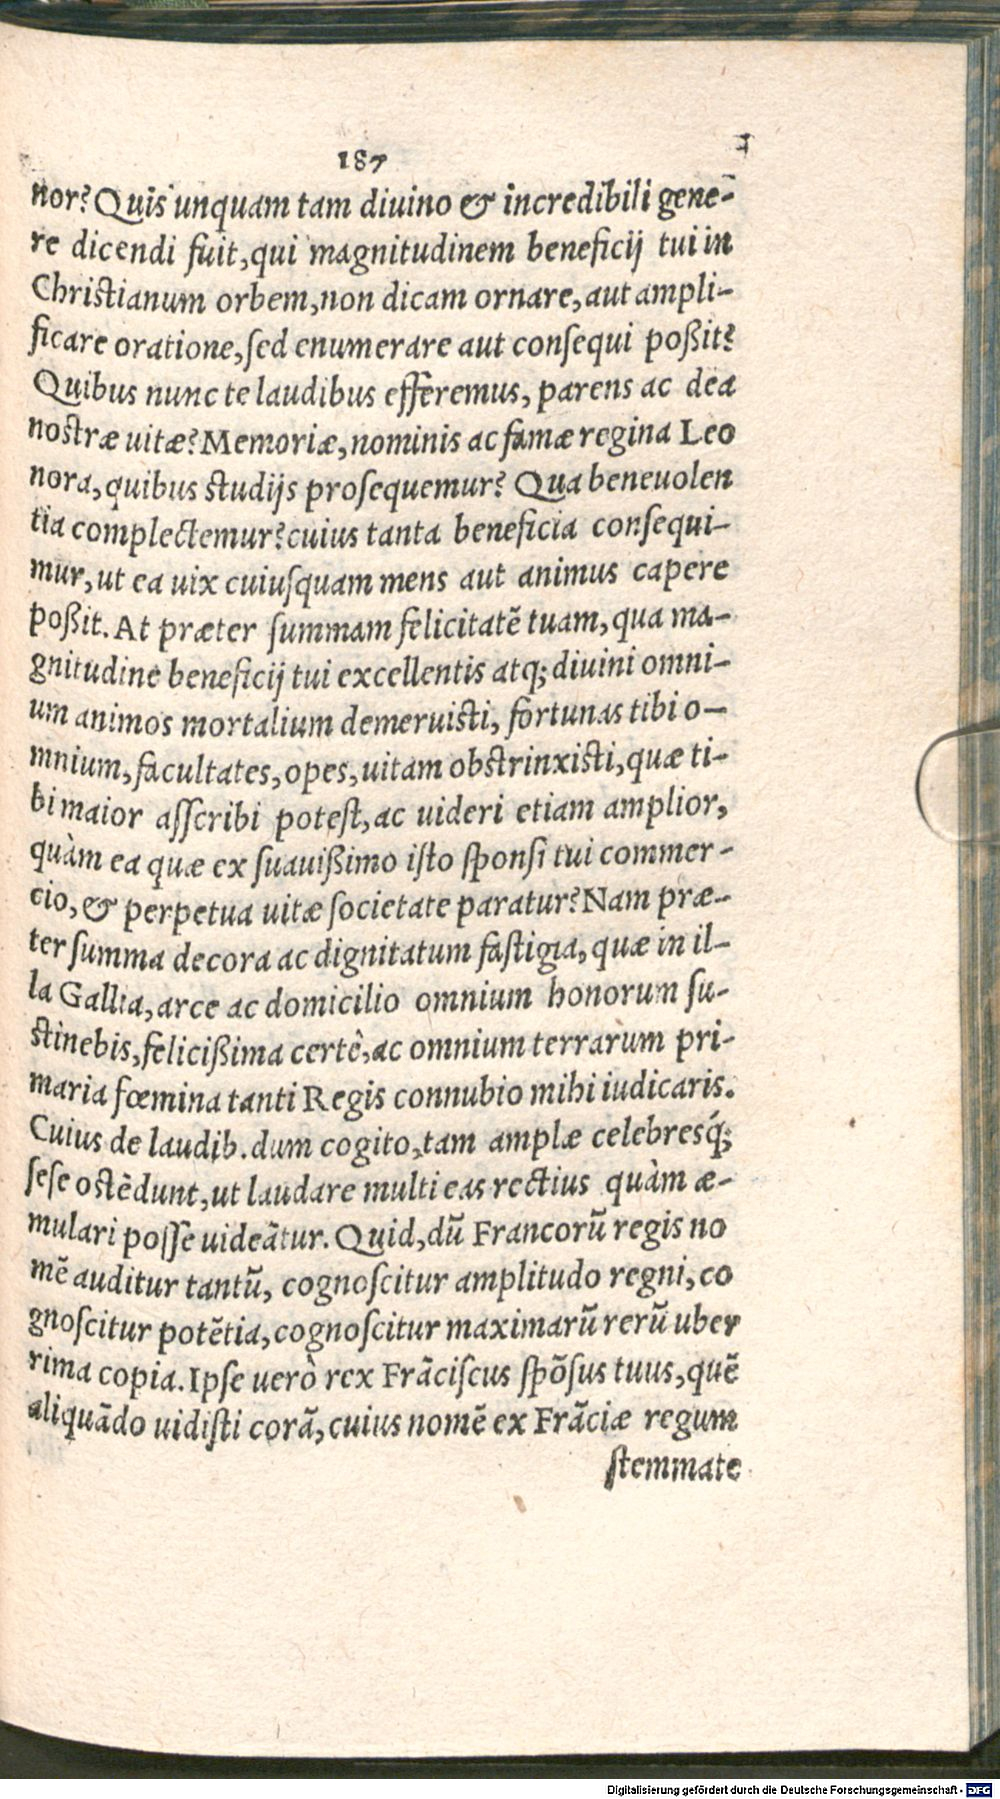 187
nor? Quis unquam tam diuino & incredibili gene-
re dicendi fuit, qui magnitudinem beneficij tui in
Christianum orbem, non dicam ornare, aut ampli-
ficare oratione, sed enumerare aut consequi poßit?
Quibus nunc te laudibus efferemus, parens ac dea
nostræ uitæ? Memoriæ, nominis ac famæ regina Leo
nora, quibus studijs prosequemur? Qua beneuolen
tia complectemur? cuius tanta beneficia consequi-
mur, ut ea uix cuiusquam mens aut animus capere
poßit. At præter summam felicitatē tuam, qua ma-
gnitudine beneficij tui excellentis atq; diuini omni-
um animos mortalium demeruisti, fortunas tibi o-
mnium, facultates, opes, uitam obstrinxisti, quæ ti-
bi maior asscribi potest, ac uideri etiam amplior,
quàm ea quæ ex suauißimo isto sponsi tui commer-
cio, & perpetua uitæ societate paratur? Nam præ-
ter summa decora ac dignitatum fastigia, quæ in il-
la Gallia, arce ac domicilio omnium honorum su-
stinebis, felicißima certè, ac omnium terrarum pri-
maria fœmina tanti Regis connubio mihi iudicaris.
Cuius de laudib. dum cogito, tam amplæ celebresq́;
sese ostēdunt, ut laudare multi eas rectius quàm æ-
mulari posse uideātur. Quid, dū Francorū regis no
mē auditur tantū, cognoscitur amplitudo regni, co
gnoscitur potētia, cognoscitur maximarū rerū uber
rima copia. Ipse uerò rex Frāciscus spōsus tuus, quē
aliquādo uidisti corā, cuius nomē ex Frāciæ regum
stemmate
Digitalisierung gefördert durch die Deutsche Forschungsgemeinschaft - DFG